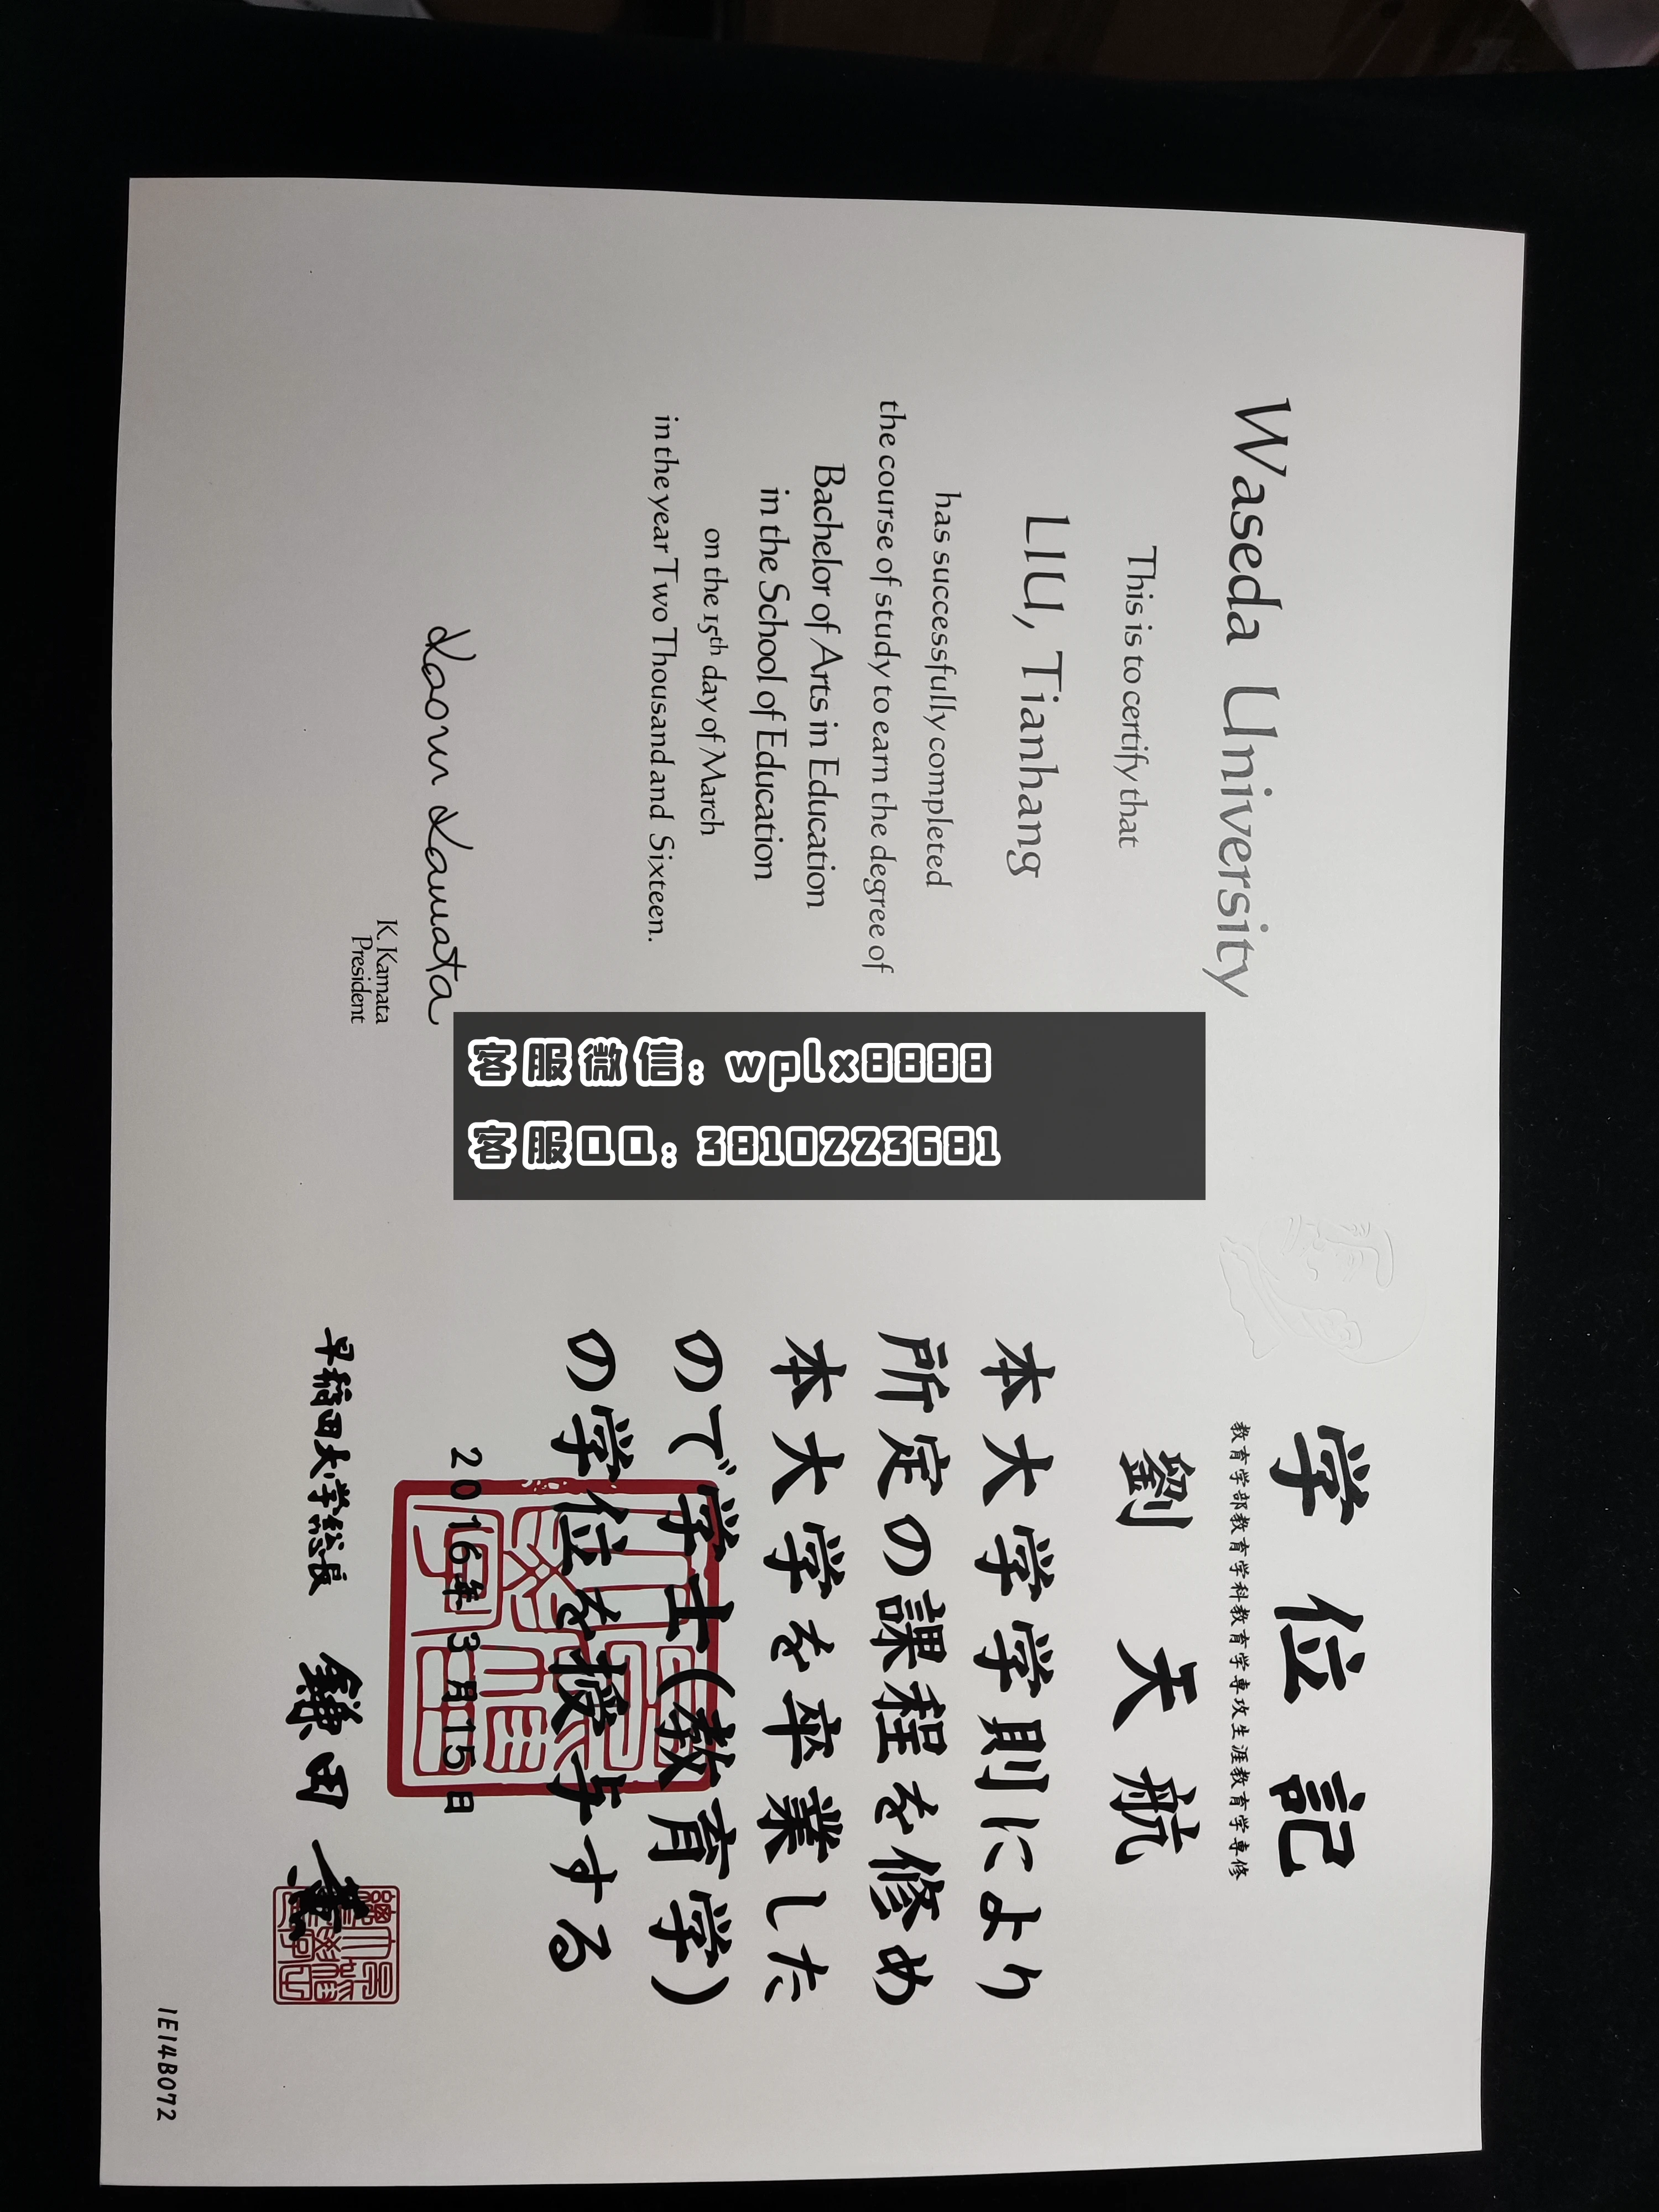 Waseda University
This is to certify that
LIU, Tianhang
has successfully completed
the course of study to earn the degree of
Bachelor of Arts in Education
in the School of Education
on the 15th day of March
in the year Two Thousand and Sixteen.
Kaoru Kamata
K. Kamata
President
客服微信: wplx8888
客服QQ: 3810223681
学位記
教育学部教育学科教育学専攻生涯教育学専修
劉天航
本大学学則により
所定の課程を修め
本大学を卒業した
ので学士(教育学)
の学位を授与する
2016年3月15日
早稲田大学総長 鎌田薫
1E14B072